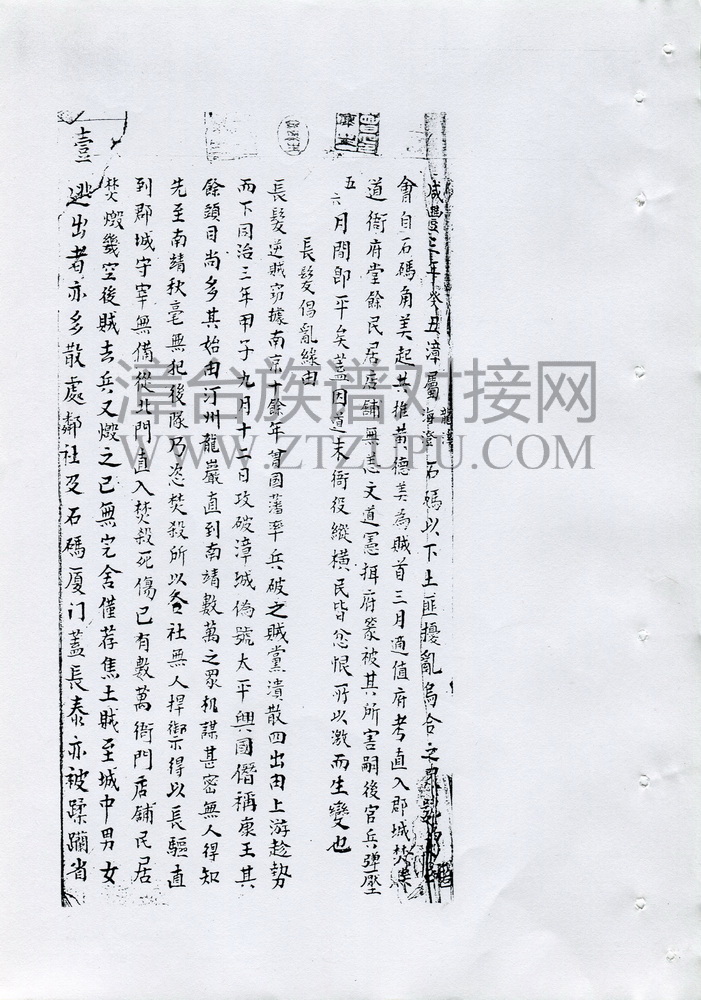 咸豐三年癸丑漳屬龍溪海澄石碼以下土匪擾亂烏合之眾
會自石碼角美起共推黃德美為賊首三月適值府考直入郡城焚
道衙府堂餘民居店舖無恙文道憲揖府篆被其所害嗣後官兵彈壓
五六月間即平矣蓋因道末衙役縱橫民皆忿恨所以激而生變也
長髮倡亂緣由
長髮逆賊窃據南京十餘年曾國藩率兵破之賊黨潰散四出由上游趁勢
而下同治三年甲子九月十二日攻破漳城偽號太平興國僭稱康王其
餘頭目尚多其始由汀州龍巖直到南靖數萬之眾机謀甚密無人得知
先至南靖秋毫無犯後隊乃恣焚殺所以各社無人捍禦得以長驅直
到郡城守宰無備從北門直入焚殺死傷已有數萬衙門店鋪民居
焚燬幾空後賊去兵又燬之已無完舍僅存焦土賊至城中男女
逃出者亦多散處鄰社及石碼厦门蓋長泰亦被蹂躪省
壹
漳台族谱对接网
WWW.ZTZUPU.COM